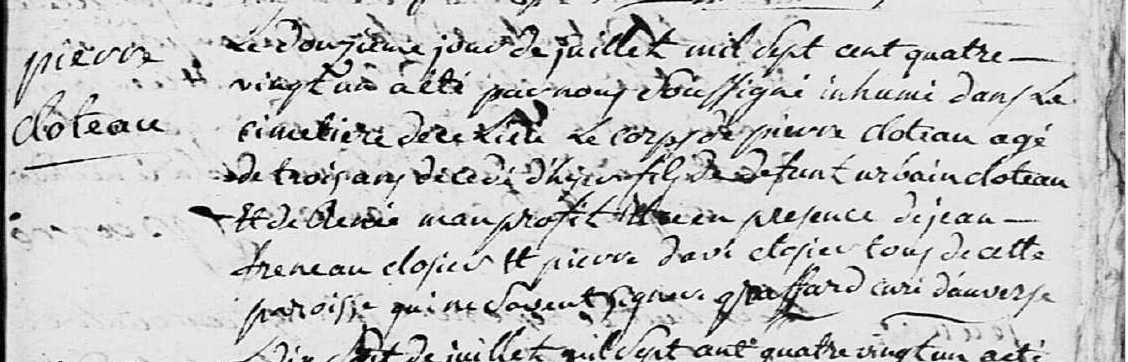 pierre
cloteau
Le douzieme jour de juillet mil sept cent quatre
vingt un a été par nous soussigné inhumé dans Le
cimetiere de ce Lieu Le corps de pierre cloteau agé
de trois ans decedé d'hyer fils de defunt urbain cloteau
Et de Renée manprofit en presence de jean
freneau closier Et pierre davi closier tous de cette
paroisse qui ne savent signer curé d'auverse
Le dix sept de juillet mil sept cent quatre vingt un a eté